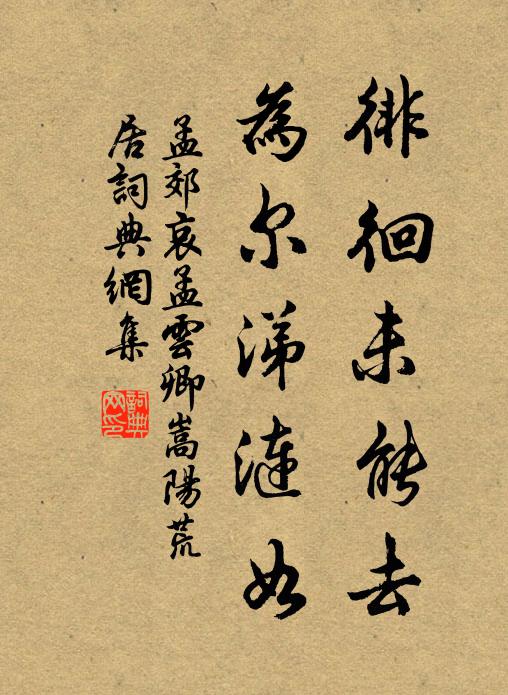 徘徊未能去
為尔涕漣如
孟郊哀孟雲卿嵩陽荒
居詞典網集
詞典网印